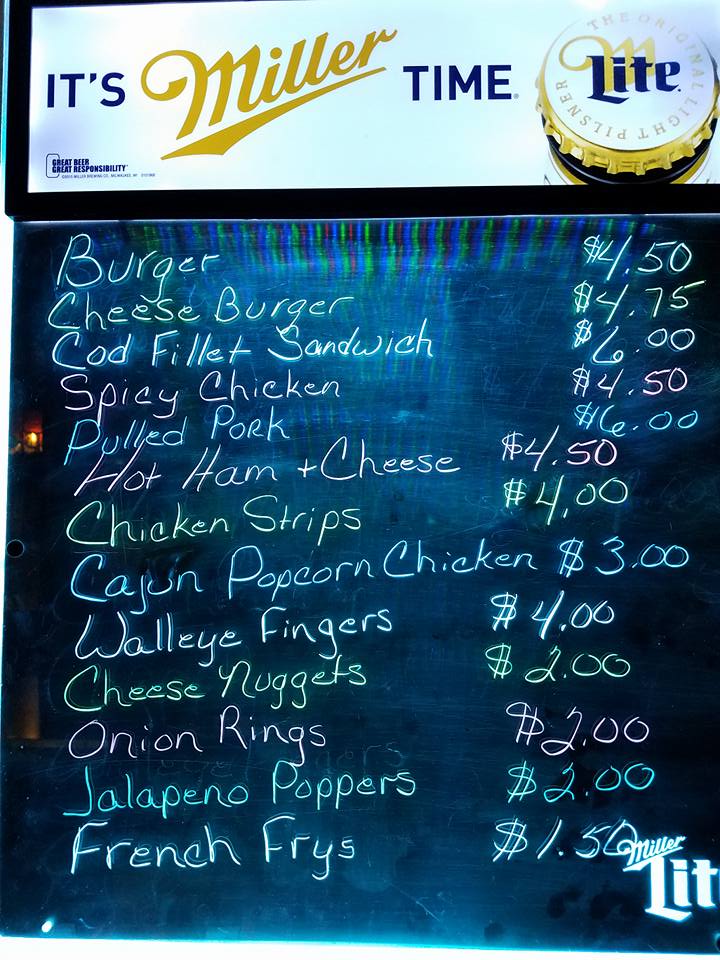 IT'S Miller TIME®
THE ORIGINAL LIGHT PILSNER
Lite
GREAT BEER
GREAT RESPONSIBILITY®
Burger $4.50
Cheese Burger $4.75
Cod Fillet Sandwich $6.00
Spicy Chicken $4.50
Pulled Pork $6.00
Hot Ham + Cheese $4.50
Chicken Strips $4.00
Cajun Popcorn Chicken $3.00
Walleye Fingers $4.00
Cheese Nuggets $2.00
Onion Rings $2.00
Jalapeno Poppers $2.00
French Frys $1.50
Miller
Lit